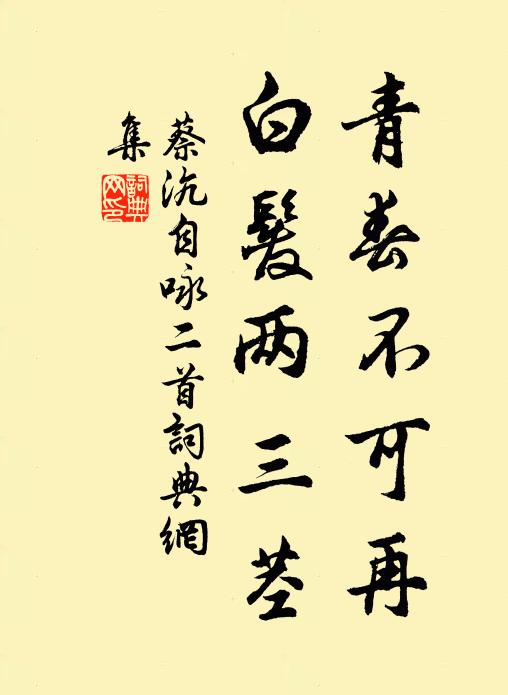 青春不可再
白髮两三茎
蔡沉自咏二首詞典網
集
詞典
网印